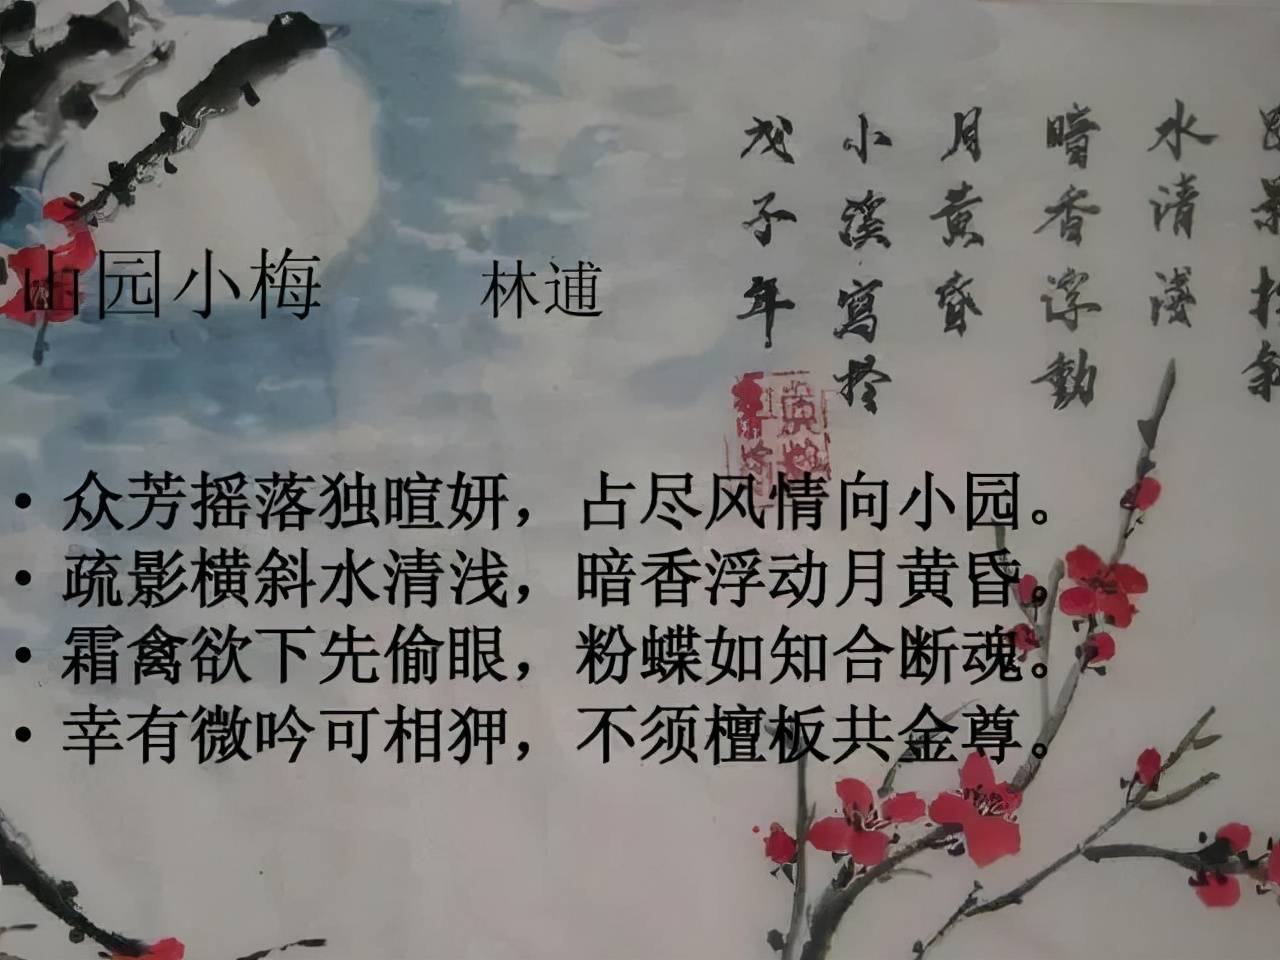 山园小梅 林逋
• 众芳摇落独暄妍，占尽风情向小园。
• 疏影横斜水清浅，暗香浮动月黄昏。
• 霜禽欲下先偷眼，粉蝶如知合断魂。
• 幸有微吟可相狎，不须檀板共金尊。
水清淺
暗香浮動
月黄昏
小溪寫於
戊子年